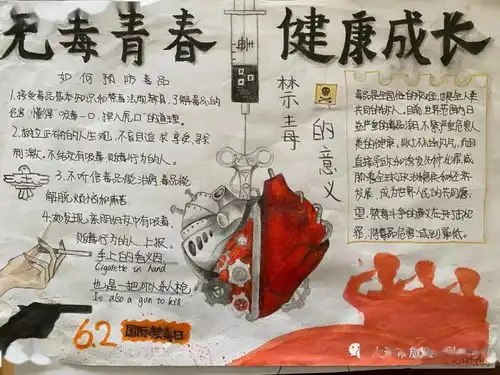 无毒青春 健康成长
如何预防毒品
1.接受毒品基本知识和禁毒法规教育,了解毒品的
危害,懂得"吸毒一口,掉入虎口"的道理。
2.树立正确的人生观,不盲目追求享受,寻求
刺激。不结交有吸毒、贩毒行为的人。
3.不听信毒品能治病,毒品能
解脱烦恼和痛苦
4.如发现亲朋好友中有吸毒、
贩毒行为的人,上报。
手上的香火因
Cigarette in hand
也是一把可以杀人枪
Is also a gun to kill.
6.2
国际禁毒日
禁毒的意义
毒品是全国性的灾难,也是全人类
共同的敌人。目前,世界范围内日
益严重的毒品泛滥,不禁严重危害人
类的健康,败坏社会风气,而且
直接导致和诱发各种犯罪,威
胁着全球的政治稳定和经济
发展,成为世界人民的共同愿
望,禁毒斗争的意义在于打击犯
罪,将毒品危害减到最低。